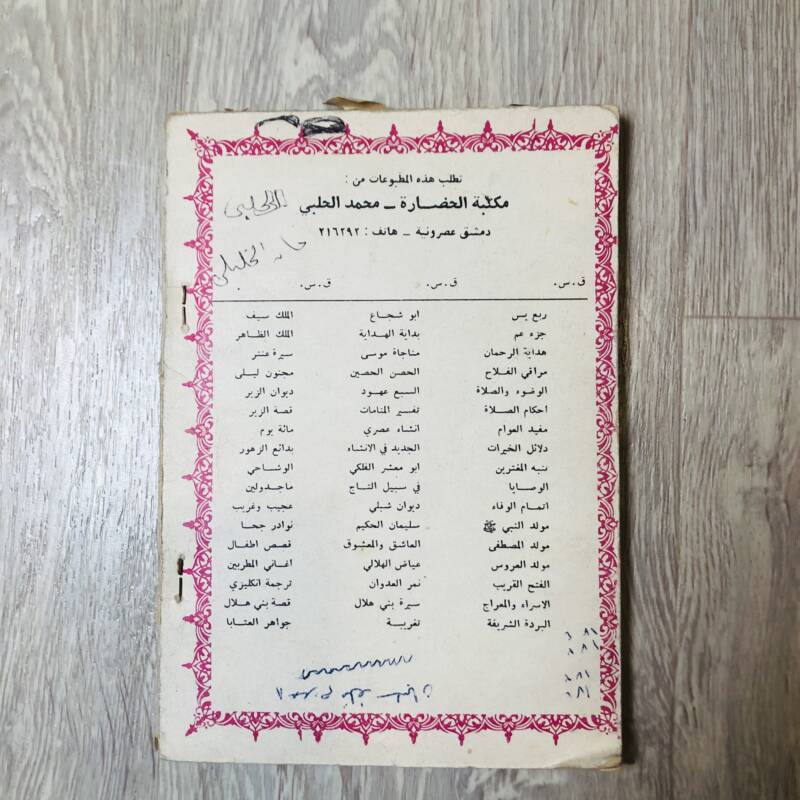 تطلب هذه المطبوعات من :
مكتبة الحضارة ــ محمد الحلبي
دمشق عصرونية ــ هاتف : ٢١٦٢٩٢
الحلبي
ق.س. ق.س. ق.س.
ربع يس ابو شجاع الملك سيف
جزء عم بداية الهداية الملك الظاهر
هداية الرحمان مناجاة موسى سيرة عنتر
مراقي الفلاح الحصن الحصين مجنون ليلى
الوضوء والصلاة السبع عهود ديوان الزير
احكام الصلاة تفسير المنامات قصة الزير
مفيد العوام انشاء عصري مائة يوم
دلائل الخيرات الجديد في الانشاء بدائع الزهور
تنبه المغترين ابو معشر الفلكي الوشاحي
الوصايا في سبيل التاج ماجدولين
اتمام الوفاء ديوان شبلي عجيب وغريب
مولد النبي ﷺ سليمان الحكيم نوادر جحا
مولد المصطفى العاشق والمعشوق قصص اطفال
مولد العروس عياض الهلالي اغاني المطربين
الفتح القريب نمر العدوان ترجمة انكليزي
الاسراء والمعراج سيرة بني هلال قصة بني هلال
البردة الشريفة تغريبة جواهر العتابا